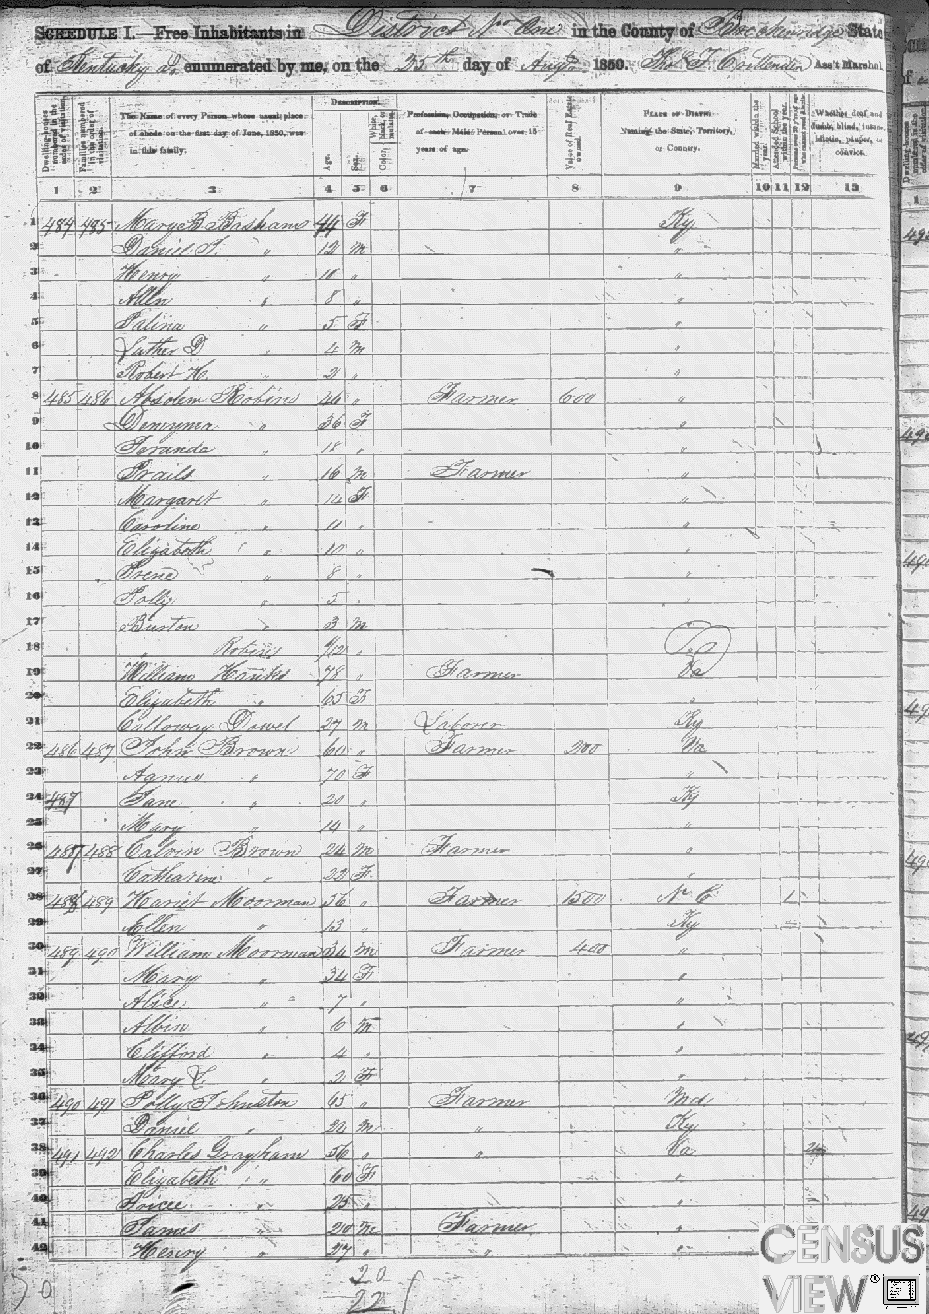 SCHEDULE I.—Free Inhabitants in District No One in the County of Breckenridge State
of Kentucky enumerated by me, on the 25th day of Augt 1850. Thos. F. Ass't Marshal
Dwelling-houses numbered in the order of visitation.
Families numbered in the order of visitation.
The Name of every Person whose usual place of abode on the first day of June, 1850, was in this family.
DESCRIPTION.
Age.
Sex.
Color, White, black, or mulatto.
Profession, Occupation, or Trade of each Male Person over 15 years of age.
Value of Real Estate owned.
PLACE OF BIRTH. Naming the State, Territory, or Country.
Married within the year.
Attended School within the year.
Whether deaf and dumb, blind, insane, idiotic, pauper, or convict.
1 2 3 4 5 6 7 8 9 10 11 12 13
1 484 485 Mary B Basham 44 F Ky
2 Daniel T. " 12 M "
3 Henry " 10 " "
4 Allen " 8 " "
5 Palina " 5 F "
6 Luther D " 4 M "
7 Robert H. " 2 " "
8 485 486 Absolem Robins 46 " Farmer 600 "
9 " 36 F "
10 " 18 " "
11 " 16 M Farmer "
12 Margaret " 14 F "
13 Caroline " 11 " "
14 Elizabeth " 10 " "
15 Irene " 8 " "
16 Polly " 5 " "
17 Burton " 3 M "
18 " Robins /12 "
19 William Hanks 78 " Farmer Va
20 Elizabeth " 65 F "
21 Calloway Dowel 27 M Laborer Ky
22 486 487 John Brown 60 " Farmer 200 Va
23 Agness " 70 F "
24 487 Jane " 20 " Ky
25 Mary " 14 " "
26 487 488 Calvin Brown 24 M Farmer "
27 Catharine " 22 F "
28 488 489 Hariet Moorman 36 " Farmer 1500 N C
29 Ellen " 13 " Ky
30 489 490 William Moorman 34 M Farmer 400 "
31 Mary " 34 F "
32 Alice " 7 " "
33 Albin " 6 M "
34 Clifford " 4 " "
35 Mary C. " 2 F "
36 490 491 Polly Johnston 65 " Farmer Md
37 Daniel " 22 M " Ky
38 491 492 Charles Grayham 56 " " Va
39 Elizabeth " 60 F "
40 " 25 " "
41 James " 20 M Farmer "
42 Henry " 27 " " "
20
22
CENSUS
VIEW ®